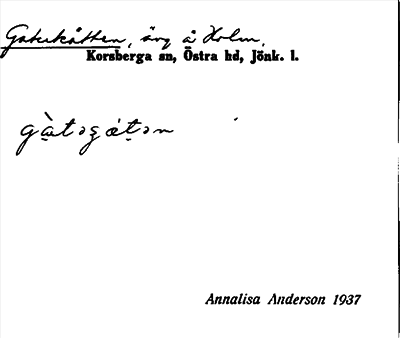 Gatukåtten, äng å Holm,
Korsberga sn, Östra hd, Jönk. l.
Annalisa Anderson 1937